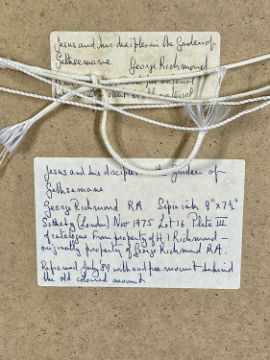 Jesus and his disciples in the Garden of
Gethsemane George Richmond
Jesus and his disciples the Garden of
Gethsemane
George Richmond RA Sepia ink 8" x 7½"
Sotheby (London) Nov 1975 Lot 16 Plate III
of catalogue From property of H. I Richmond –
originally property of George Richmond R.A.
Reframed July 89 with acid free mount behind
the old coloured mount